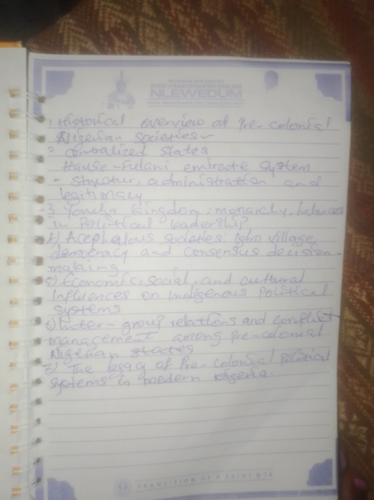 NLEWEDUM
1. Historical overview of Pre-colonial
Nigerian societies
2 Centralized states
Hausa-Fulani emirate system
- Structure, administration and
legitimacy
3. Yoruba kingdom, monarchy,
in Political leadership
4) Acephalous societies Igbo village
democracy and consensus decision-
making
5) Economic, social, and cultural
Influences on Indigenous Political
systems
6) Inter-group relations and conflict
management among Pre-colonial
Nigerian states
The legacy of Pre-colonial Political
systems in modern Nigeria.
TRANSITION OF A SAINT